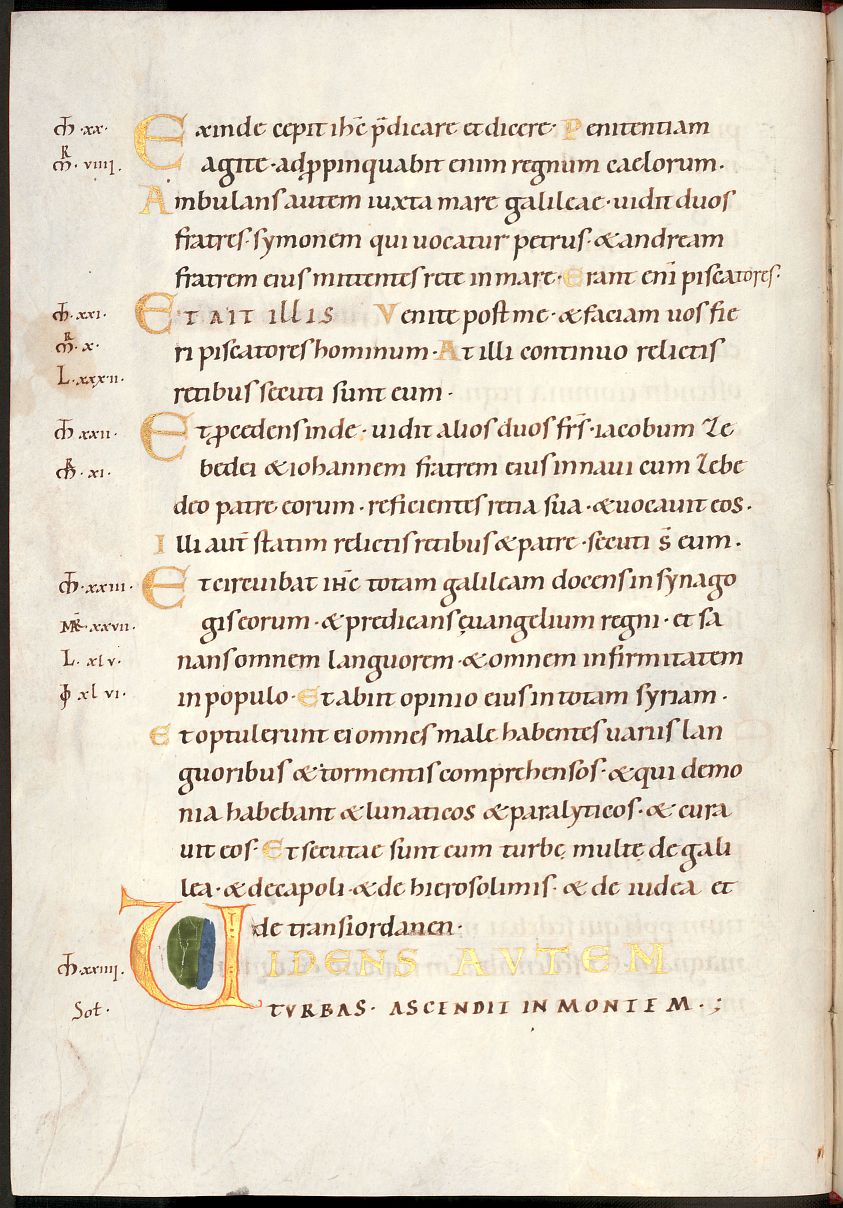 M̄ · xx · Exinde cepit ih̄c p̄dicare et dicere · Penitentiam
M̄R · viiii · agite · adp̱pinquabit enim regnum caelorum ·
Ambulans autem iuxta mare galileae · uidit duos
fratres · symonem qui uocatur petrus · & andream
fratrem eius mittentes rete in mare · Erant eni̅ piscatores ·
M̄ · xxi · Et ait illis Venite post me · & faciam uos fie
M̄R · x · ri piscatores hominum · At illi continuo relictis
L · xxxii · retibus secuti sunt eum ·
M̄ · xxii · Et ꝓcedens inde · uidit alios duos fr̄s · iacobum ze
M̄R · xi · bedei & iohannem fratrem eius in naui cum zebe
deo patre eorum · reficientes retia sua · & uocauit eos ·
Illi aut̄ statim relictis retibus & patre · secuti s̄ eum ·
M̄ · xxiii · Et circuibat ih̄c totam galileam docens in synago
MR̄ · xxvii · gis eorum · & predicans ęuangelium regni · et sa
L · xlv · nans omnem languorem · & omnem infirmitatem
xlvi · in populo · Et abiit opinio eius in totam syriam ·
Et optulerunt ei omnes male habentes uariis lan
guoribus & tormentis comprehensos · & qui demo
nia habebant & lunaticos & paralyticos · & cura
uit eos · Et secutae sunt eum turbę multę de gali
lea · & decapoli · & de hierosolimis · & de iudea et
de transiordanen ·
M̄ · xxiiii · VIDENS AVTEM
Sol · TVRBAS · ASCENDIT IN MONTEM · ;